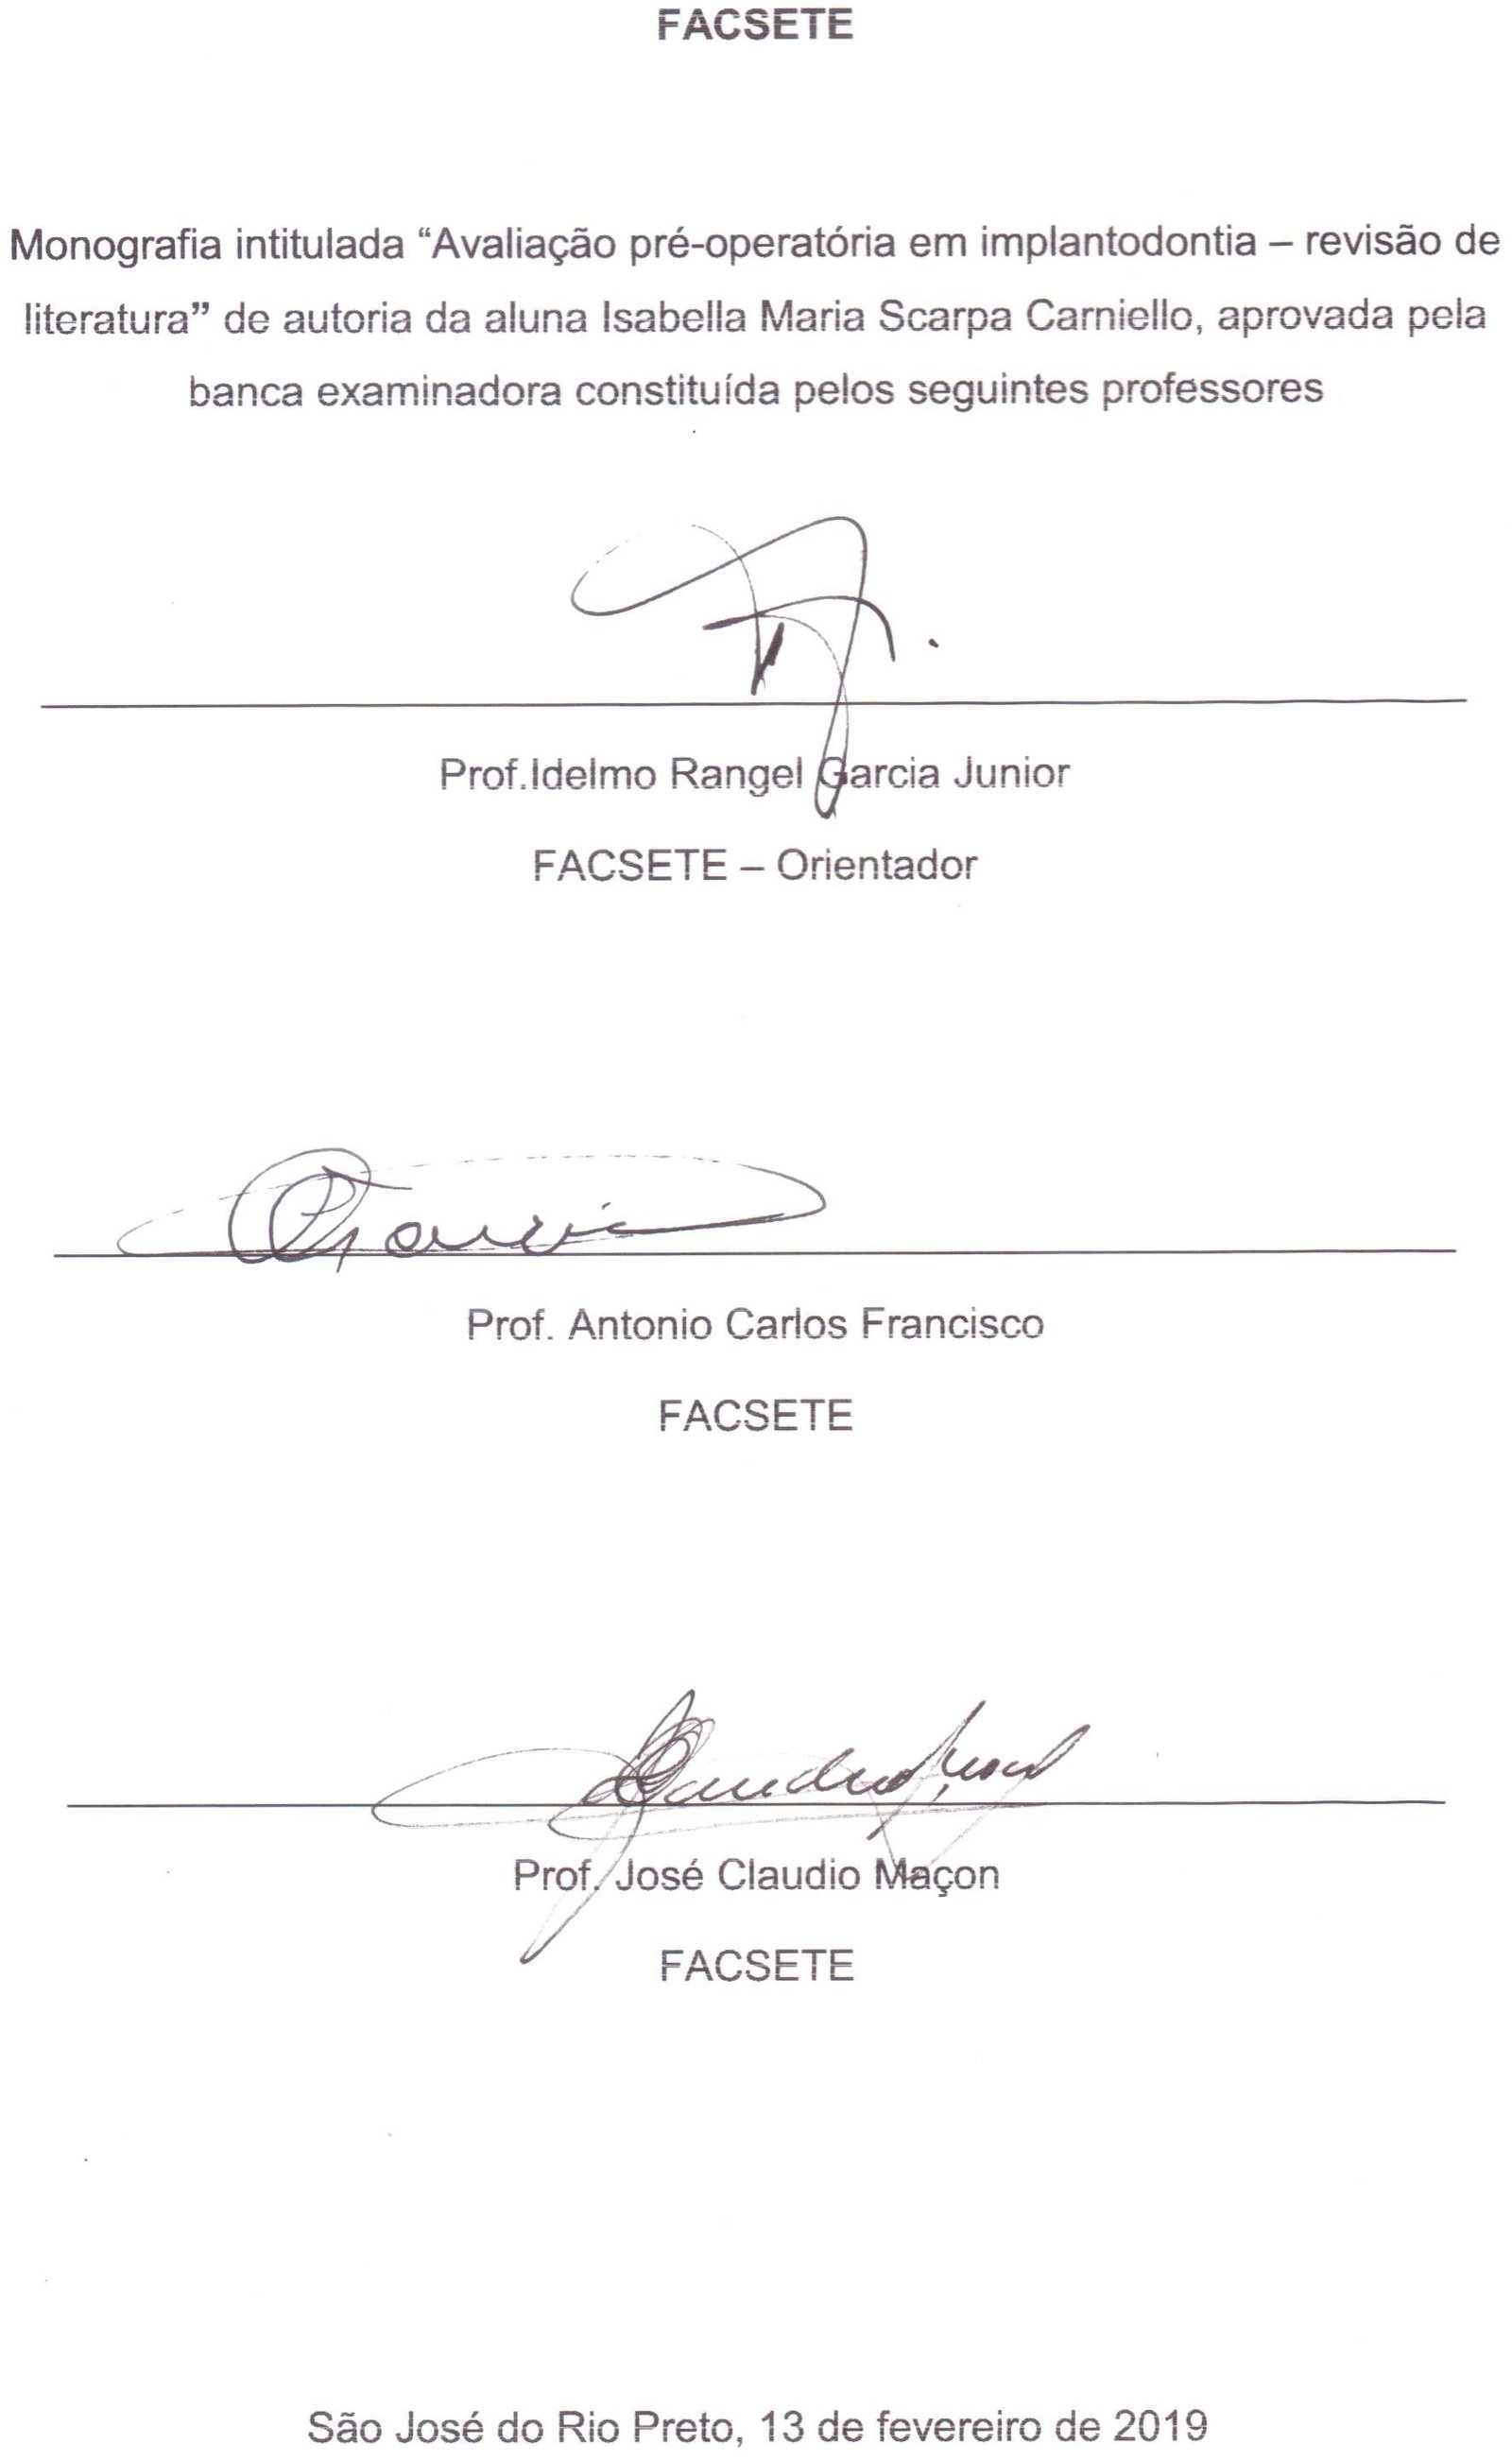 FACSETE
Monografia intitulada “Avaliação pré-operatória em implantodontia – revisão de
literatura” de autoria da aluna Isabella Maria Scarpa Carniello, aprovada pela
banca examinadora constituída pelos seguintes professores
Prof.Idelmo Rangel Garcia Junior
FACSETE – Orientador
Prof. Antonio Carlos Francisco
FACSETE
Prof. José Claudio Maçon
FACSETE
São José do Rio Preto, 13 de fevereiro de 2019